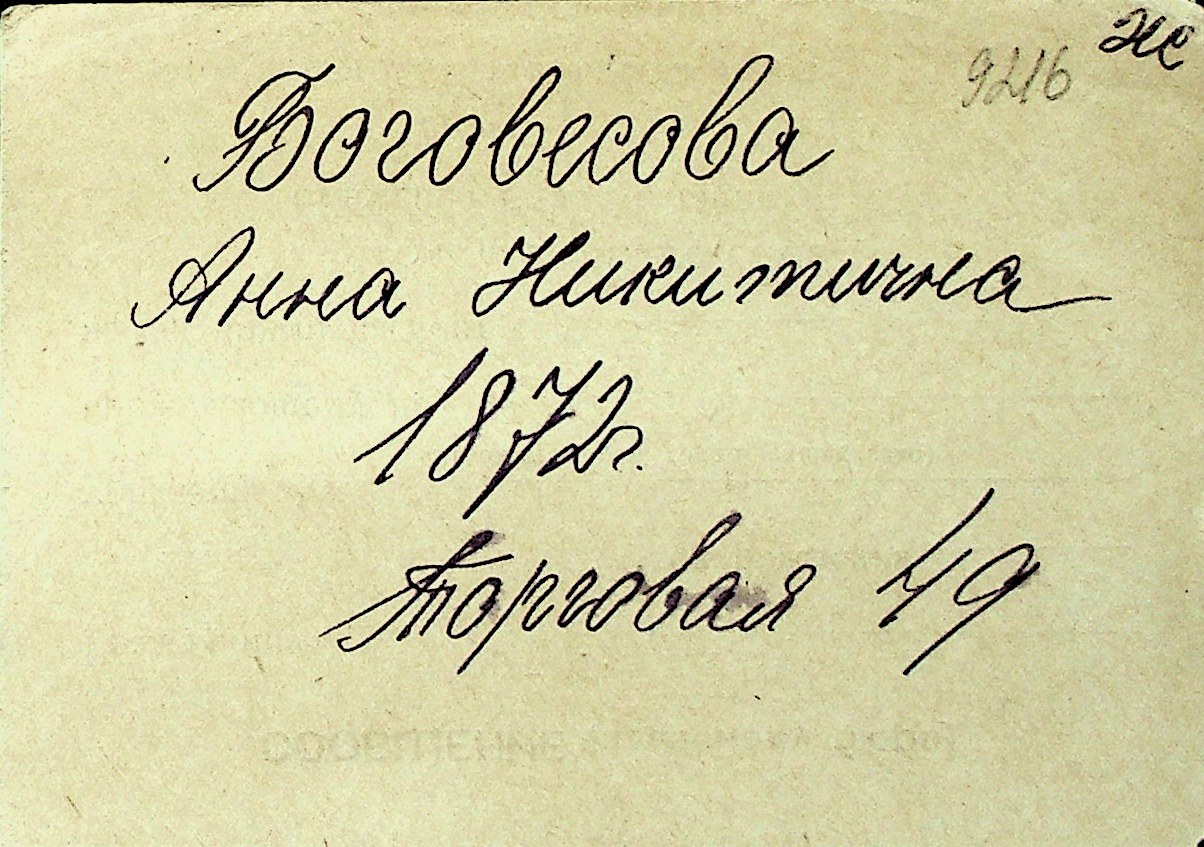 Ж
9216
Боговесова
Анна Никитична
1872г.
Торговая 49